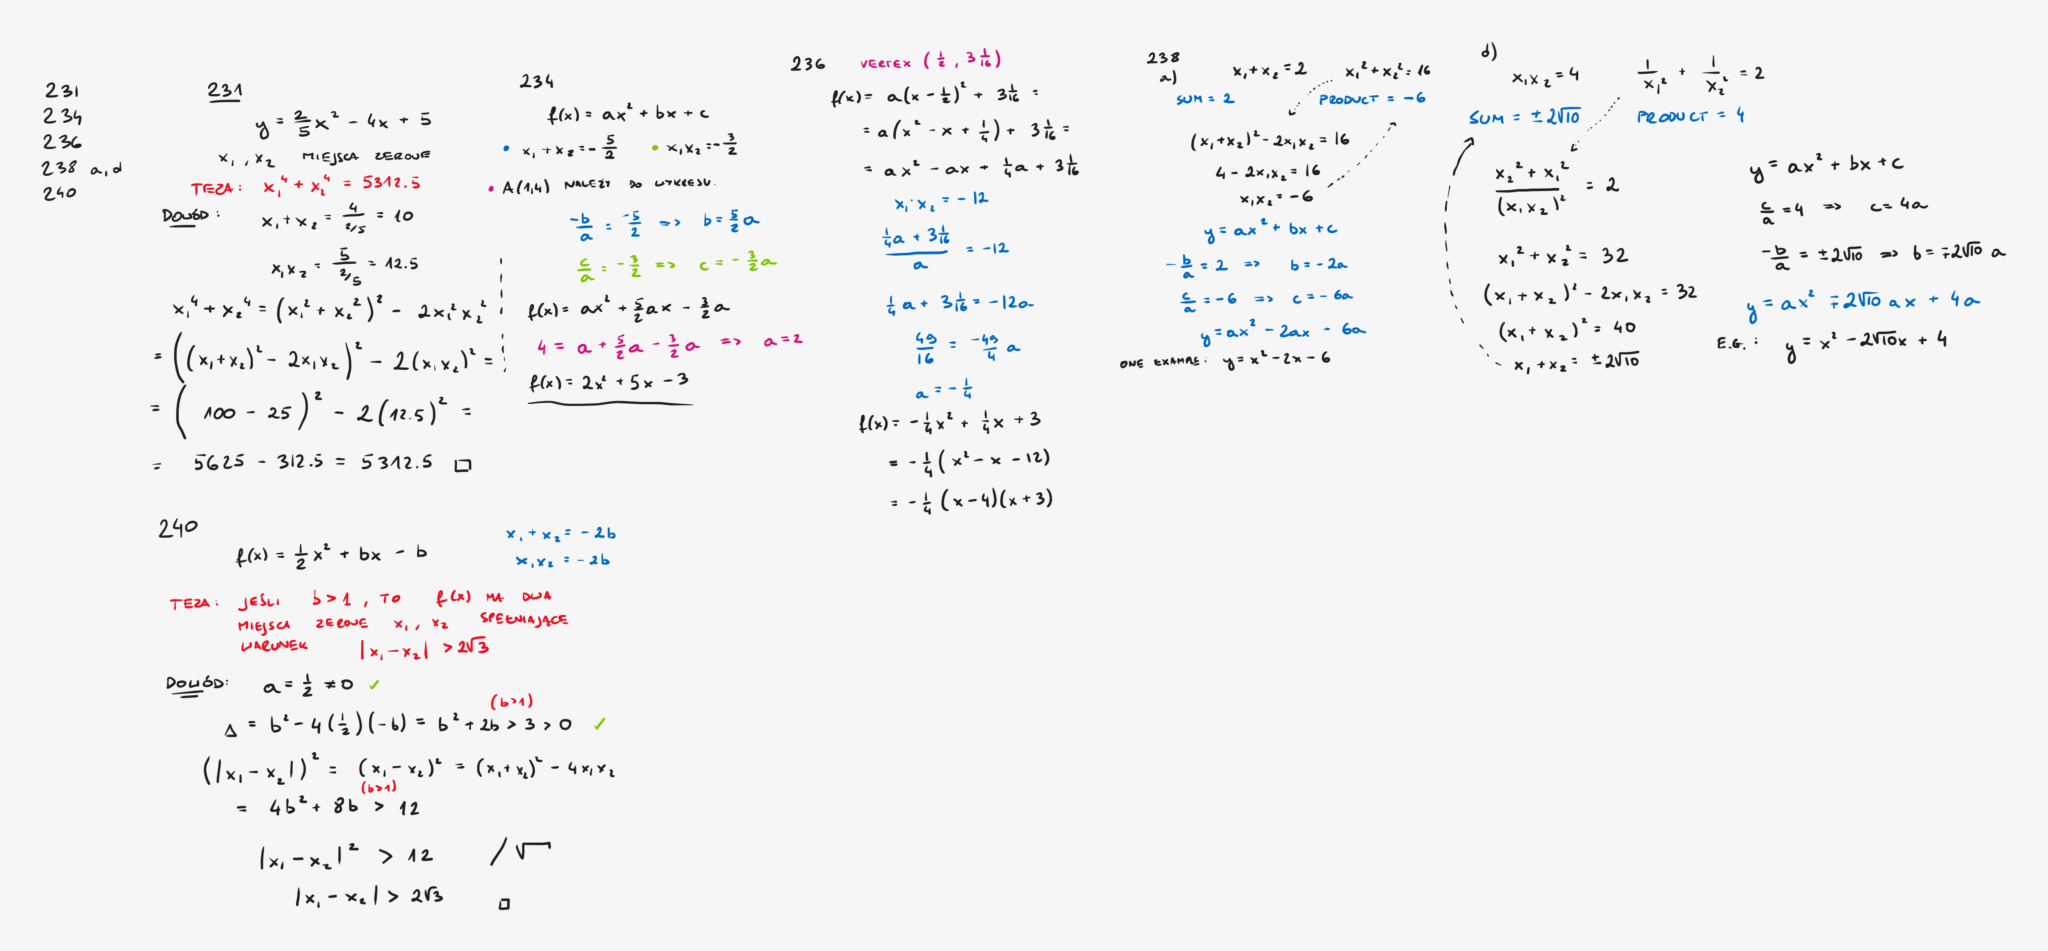 231
234
236
238 a,d
240
231
y = 2/5 x² - 4x + 5
x₁, x₂ MIEJSCA ZEROWE
TEZA: x₁⁴ + x₂⁴ = 5312.5
DOWÓD: x₁ + x₂ = 4/(2/5) = 10
x₁x₂ = 5/(2/5) = 12.5
x₁⁴ + x₂⁴ = (x₁² + x₂²)² - 2x₁²x₂²
= ((x₁+x₂)² - 2x₁x₂)² - 2(x₁x₂)² =
= (100 - 25)² - 2(12.5)² =
= 5625 - 312.5 = 5312.5 □
234
f(x) = ax² + bx + c
• x₁ + x₂ = -5/2 • x₁x₂ = -3/2
• A(1,4) NALEŻY DO WYKRESU.
-b/a = -5/2 => b = 5/2 a
c/a = -3/2 => c = -3/2 a
f(x) = ax² + 5/2 ax - 3/2 a
4 = a + 5/2 a - 3/2 a => a = 2
f(x) = 2x² + 5x - 3
236 VERTEX (1/2, 3 1/16)
f(x) = a(x - 1/2)² + 3 1/16 =
= a(x² - x + 1/4) + 3 1/16 =
= ax² - ax + 1/4 a + 3 1/16
x₁·x₂ = -12
(1/4 a + 3 1/16)/a = -12
1/4 a + 3 1/16 = -12a
49/16 = -49/4 a
a = -1/4
f(x) = -1/4 x² + 1/4 x + 3
= -1/4 (x² - x - 12)
= -1/4 (x-4)(x+3)
238
a) x₁ + x₂ = 2 x₁² + x₂² = 16
SUM = 2 PRODUCT = -6
(x₁+x₂)² - 2x₁x₂ = 16
4 - 2x₁x₂ = 16
x₁x₂ = -6
y = ax² + bx + c
-b/a = 2 => b = -2a
c/a = -6 => c = -6a
y = ax² - 2ax - 6a
ONE EXAMPLE: y = x² - 2x - 6
d) x₁x₂ = 4 1/x₁² + 1/x₂² = 2
SUM = ±2√10 PRODUCT = 4
(x₂² + x₁²)/(x₁x₂)² = 2
x₁² + x₂² = 32
(x₁ + x₂)² - 2x₁x₂ = 32
(x₁ + x₂)² = 40
x₁ + x₂ = ±2√10
y = ax² + bx + c
c/a = 4 => c = 4a
-b/a = ±2√10 => b = ∓2√10 a
y = ax² ∓ 2√10 ax + 4a
E.G.: y = x² - 2√10x + 4
240
f(x) = 1/2 x² + bx - b
x₁ + x₂ = -2b
x₁x₂ = -2b
TEZA: JEŚLI b > 1, TO f(x) MA DWA
MIEJSCA ZEROWE x₁, x₂ SPEŁNIAJĄCE
WARUNEK |x₁ - x₂| > 2√3
DOWÓD: a = 1/2 ≠ 0 ✓
(b>1)
Δ = b² - 4(1/2)(-b) = b² + 2b > 3 > 0 ✓
(|x₁ - x₂|)² = (x₁ - x₂)² = (x₁+x₂)² - 4x₁x₂
(b>1)
= 4b² + 8b > 12
|x₁ - x₂|² > 12 /√
|x₁ - x₂| > 2√3 □